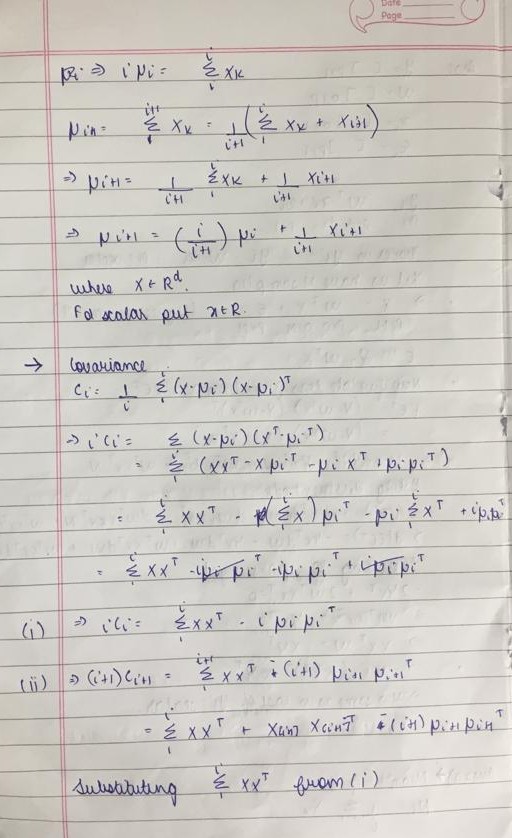 Date
Page
μi ⇒ i μi = Σ₁ⁱ xk
μi+1 = Σ₁ⁱ⁺¹ xk = 1/(i+1) (Σ₁ⁱ xk + xi+1)
⇒ μi+1 = 1/(i+1) Σ₁ⁱ xk + 1/(i+1) xi+1
⇒ μi+1 = (i/(i+1)) μi + 1/(i+1) xi+1
where x ∈ Rᵈ.
For scalar put x ∈ R.
→ Covariance
Ci = 1/i Σ₁ⁱ (x-μi)(x-μi)ᵀ
⇒ iCi = Σ (x-μi)(xᵀ-μiᵀ)
= Σ₁ⁱ (xxᵀ - xμiᵀ - μi xᵀ + μi μiᵀ)
= Σ₁ⁱ xxᵀ - (Σ₁ⁱ x) μiᵀ - μi Σ₁ⁱ xᵀ + iμiμiᵀ
= Σ₁ⁱ xxᵀ - iμi μiᵀ - iμi μiᵀ + iμi μiᵀ
(i) ⇒ iCi = Σ₁ⁱ xxᵀ - i μi μiᵀ
(ii) ⇒ (i+1)Ci+1 = Σ₁ⁱ⁺¹ xxᵀ - (i+1) μi+1 μi+1ᵀ
= Σ₁ⁱ xxᵀ + x(i+1) x(i+1)ᵀ - (i+1) μi+1 μi+1ᵀ
Substituting Σ₁ⁱ xxᵀ from (i)